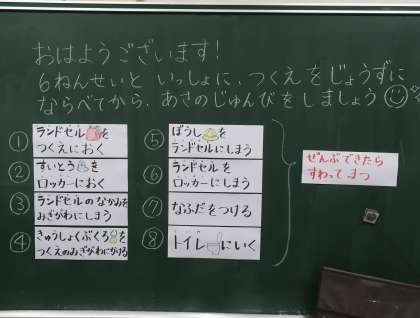 おはようございます!
6ねんせいと いっしょに、つくえをじょうずに
ならべてから、あさのじゅんびをしましょう
① ランドセルを
つくえにおく
② すいとうを
ロッカーにおく
③ ランドセルのなかみを
みぎがわにしまう
④ きゅうしょくぶくろを
つくえのみぎがわにかける
⑤ ぼうしを
ランドセルにしまう
⑥ ランドセルを
ロッカーにしまう
⑦ なふだをつける
⑧ トイレにいく
ぜんぶできたら
すわってまつ